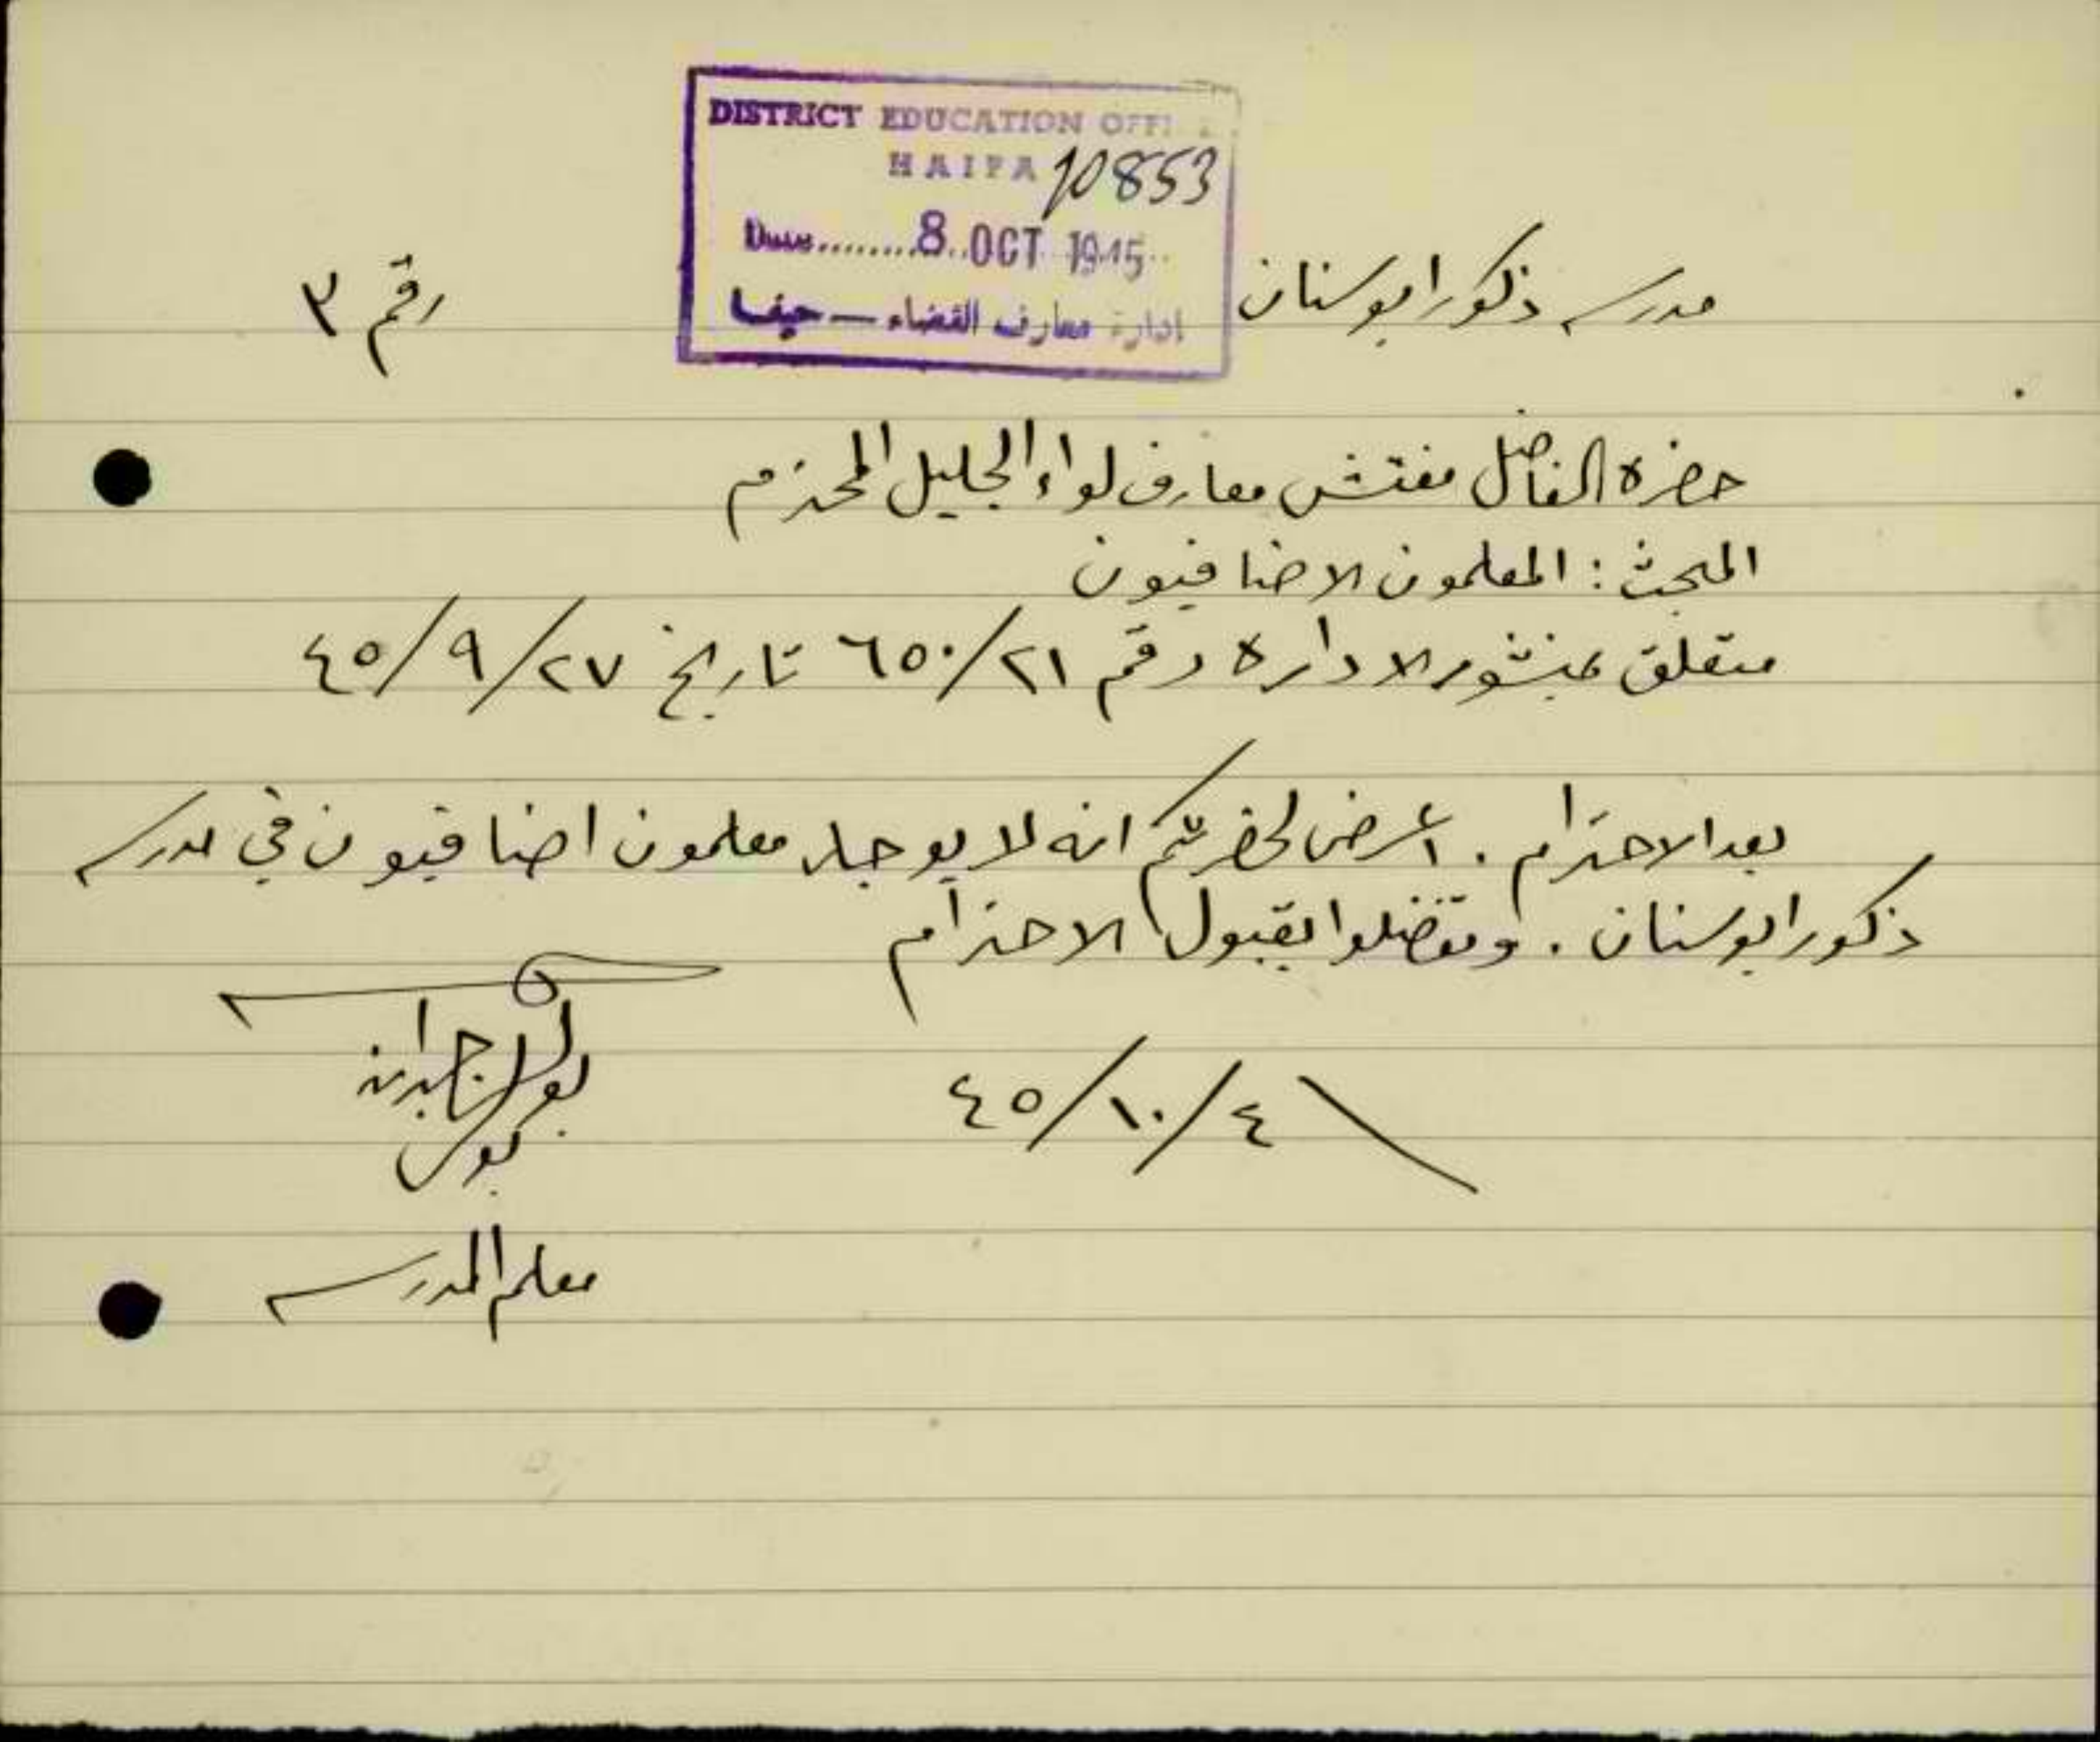 DISTRICT EDUCATION OFFI
HAIFA 10853
Date........8 OCT 1945
ادارة معارف القضاء — حيفا
مدرسه ذكور ابوسنان
رقم ٣
حضرة الفاضل مفتش معارف لواء الجليل المحترم
المبحث : المعلمون الاضافيون
متعلق بمنشور الاداره رقم ٦٥٠/٢١ تاريخ ٤٥/٩/٢٧
بعد الاحترام . اعرض لحضرتكم انه لا يوجد معلمون اضافيون في مدرسه
ذكور ابوسنان . وتفضلوا بقبول الاحترام
٤٥/١٠/٤
بولس
معلم المدرسه